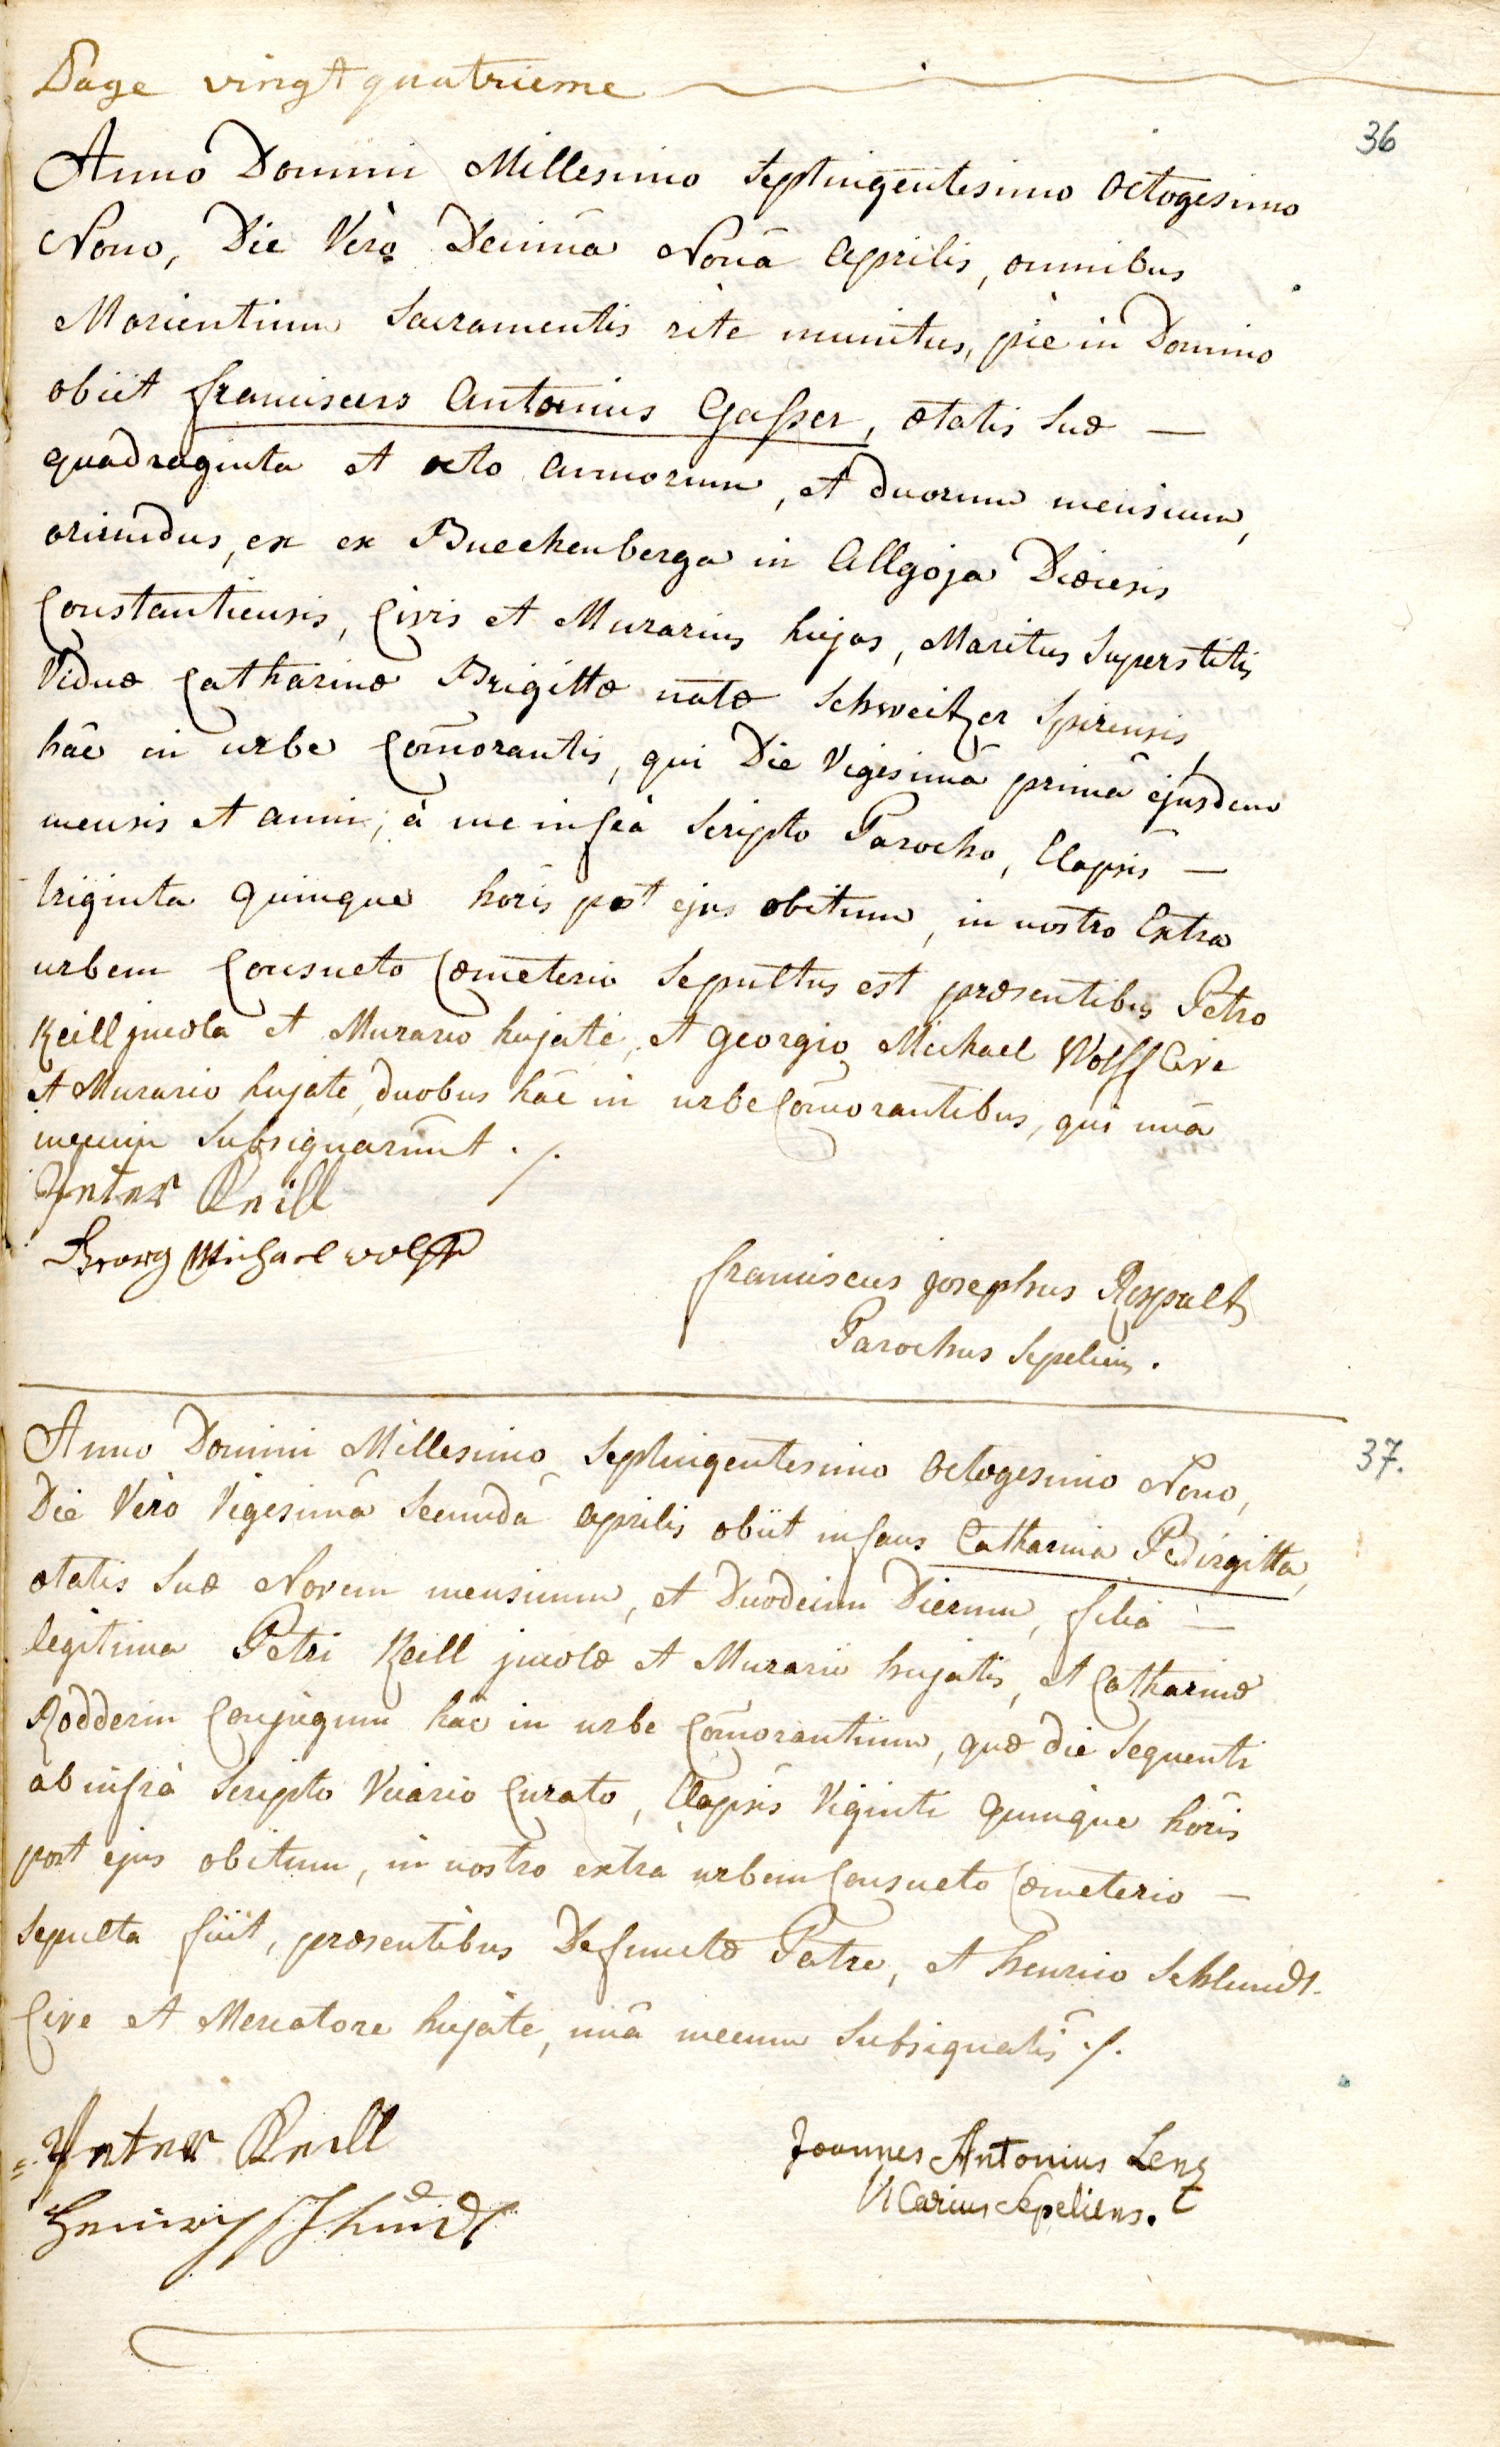 Page vingt quatrieme
36
Anno Domini Millesimo Septingentesimo Octogesimo
Nono, Die Verò Decimâ Nonâ Aprilis, omnibus
Morientium Sacramentis rite munitus, piè in Domino
obiit franciscus Antonius Gasser, ætatis suæ —
quadraginta et octo annorum, et duorum mensium,
oriundus, ex ex Buechenberga in Allgoja Diœcesis
Constantiensis, Civis et Murarius hujas, Maritus Superstitis
Viduæ Catharinæ Brigittæ natæ Schweitzer Spirensis,
hâc in urbe Com̄orantis, qui Die Vigesimâ primâ ejusdem
mensis et anni, à me infrà Scripto Parocho, Elapsis —
triginta quinque horis post ejus obitum, in nostro Extra
urbem Consueto Cœmeterio Sepultus est præsentibus Petro
Keill jncola et Murario hujate, et Georgio Michael Wolff Cive
et Murario hujate, duobus hâc in urbe Com̄orantibus, qui unâ
mecum Subsignarunt ./.
Peter Keill
Georg Michael Wolff
franciscus josephus Rospalt
Parochus Sepeliens.
37.
Anno Domini Millesimo Septingentesimo Octogesimo Nono,
Die Verò Vigesimâ Secundâ Aprilis obiit infans Catharina Birgitta,
ætatis Suæ Novem mensium, et Duodecim Dierum, filia —
legitima Petri Keill jncolæ et Murarii hujatis, et Catharinæ
Rodderin Conjugum hâc in urbe Com̄orantium, quæ die Sequenti
ab infrà Scripto Vicario Curato, Elapsis Viginti Quinque horis
post ejus obitum, in nostro extrà urbem Consueto Cœmeterio —
Sepulta fuit, præsentibus Defunctæ Patre, et Henrico Schlundt
Cive et Mercatore hujate, unâ mecum Subsignatis ./.
Peter Keill
Henrich Schlundt
Joannes Antonius Lenz
Vicarius Sepeliens.